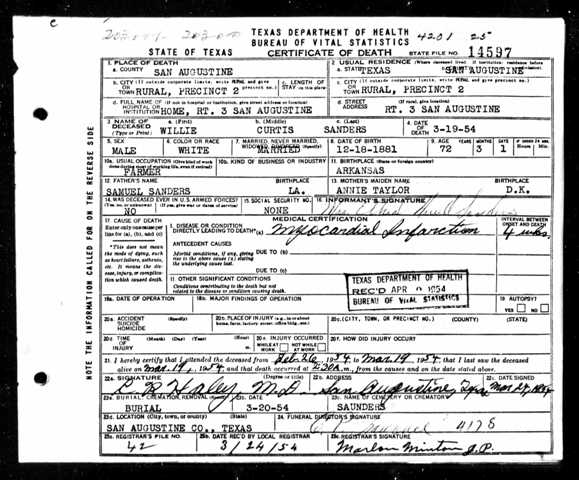 TEXAS DEPARTMENT OF HEALTH
BUREAU OF VITAL STATISTICS
4201 25
STATE OF TEXAS CERTIFICATE OF DEATH STATE FILE NO. 14597
1. PLACE OF DEATH
a. COUNTY SAN AUGUSTINE
2. USUAL RESIDENCE (Where deceased lived. If institution: residence before
a. STATE TEXAS SAN AUGUSTINE
b. CITY (If outside corporate limits, write RURAL and give precinct no.)
OR TOWN RURAL, PRECINCT 2
c. LENGTH OF STAY
c. CITY (If outside corporate limits, write RURAL and give precinct no.)
OR TOWN RURAL, PRECINCT 2
d. FULL NAME OF (If not in hospital or institution, give street address or location)
HOSPITAL OR INSTITUTION HOME, RT. 3 SAN AUGUSTINE
d. STREET ADDRESS (If rural, give location)
RT. 3 SAN AUGUSTINE
3. NAME OF DECEASED (Type or Print)
a. (First) WILLIE
b. (Middle) CURTIS
c. (Last) SANDERS
4. DATE OF DEATH 3-19-54
5. SEX MALE
6. COLOR OR RACE WHITE
7. MARRIED, NEVER MARRIED, MARRIED
8. DATE OF BIRTH 12-18-1881
9. AGE YEARS 72 MONTHS 3 DAYS 1
10a. USUAL OCCUPATION FARMER
10b. KIND OF BUSINESS OR INDUSTRY
11. BIRTHPLACE (State or foreign country) ARKANSAS
12. FATHER'S NAME SAMUEL SANDERS LA.
13. MOTHER'S MAIDEN NAME ANNIE TAYLOR D.K.
14. WAS DECEASED EVER IN U.S. ARMED FORCES? NO
15. SOCIAL SECURITY NO. NONE
16. INFORMANT'S SIGNATURE Mrs.
17. CAUSE OF DEATH
Enter only one cause per line for (a), (b), and (c)
MEDICAL CERTIFICATION
INTERVAL BETWEEN ONSET AND DEATH
I. DISEASE OR CONDITION
DIRECTLY LEADING TO DEATH (a) Myocardial Infarction 4 wks.
*This does not mean the mode of dying, such as heart failure, asthenia, etc. It means the disease, injury, or complication which caused death.
ANTECEDENT CAUSES
Morbid conditions, if any, giving rise to the above cause (a) stating the underlying cause last.
DUE TO (b)
DUE TO (c)
II. OTHER SIGNIFICANT CONDITIONS
Conditions contributing to the death but not related to the disease or condition causing death.
TEXAS DEPARTMENT OF HEALTH
REC'D APR 1954
BUREAU OF VITAL STATISTICS
18a. DATE OF OPERATION
18b. MAJOR FINDINGS OF OPERATION
19. AUTOPSY?
YES NO
20a. ACCIDENT SUICIDE HOMICIDE (Specify)
20b. PLACE OF INJURY (e.g., in or about home, farm, factory, street, office bldg., etc.)
20c. (CITY, TOWN, OR PRECINCT NO.) (COUNTY) (STATE)
20d. TIME OF INJURY
20e. INJURY OCCURRED
WHILE AT WORK NOT WHILE AT WORK
20f. HOW DID INJURY OCCUR?
21. I hereby certify that I attended the deceased from Feb. 26, 1954, to Mar. 19, 1954, that I last saw the deceased
alive on Mar. 19, 1954 and that death occurred at m., from the causes and on the date stated above.
22a. SIGNATURE (Degree or title)
Haley, M.D.
22b. ADDRESS San Augustine, Texas
22c. DATE SIGNED
23a. BURIAL, CREMATION, REMOVAL (Specify) BURIAL
23b. DATE 3-20-54
23c. NAME OF CEMETERY OR CREMATORY SAUNDERS
23d. LOCATION (City, town, or county) (State)
SAN AUGUSTINE CO., TEXAS
24. FUNERAL DIRECTOR'S SIGNATURE
4178
25a. REGISTRAR'S FILE NO. 42
25b. DATE REC'D BY LOCAL REGISTRAR 3/24/54
25c. REGISTRAR'S SIGNATURE Marlon Minton J.P.
NOTE THE INFORMATION CALLED FOR ON THE REVERSE SIDE